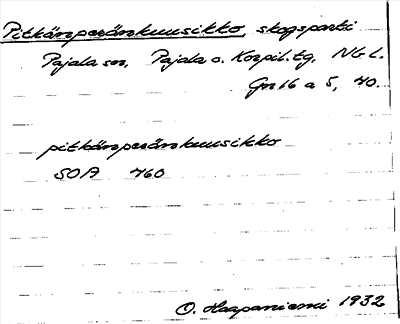 Pitkänperänkuusikko, skogsparti
Pajala sn, Pajala o. Korpil. tg, N.G.L.
Gn 16 a 5, 40.
pitkänperänkuusikko
SOA 460
O. Haapaniemi 1932